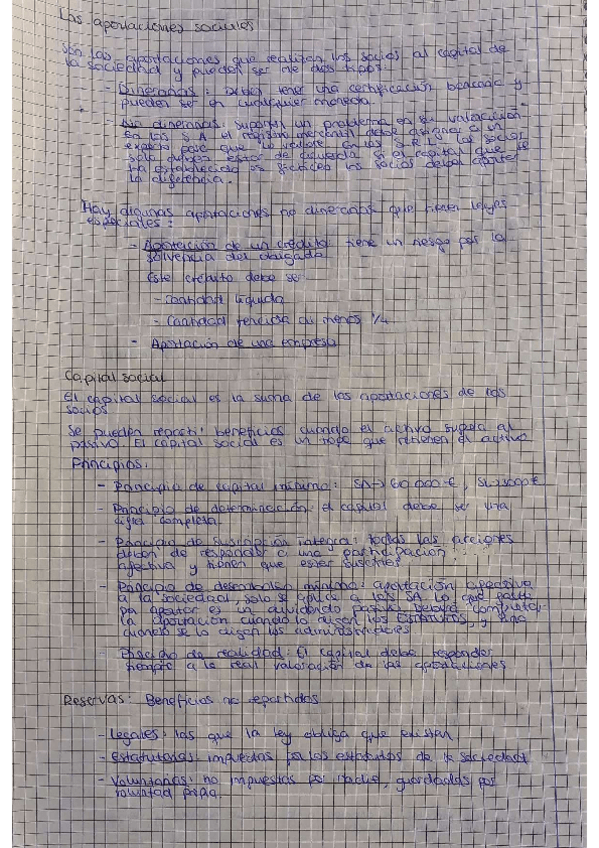 Las aportaciones sociales
Son las aportaciones que realizan los socios al capital de
la sociedad y pueden ser de dos tipos:
- Dinerarias: deben tener una certificación bancaria y
pueden ser en cualquier moneda.
- No dinerarias: suponen un problema en su valoración
en las SA el registro mercantil debe asignar a un
experto para que lo valore. En las S.R.L. los socios
solo deben estar de acuerdo. Si el capital que se
ha establecido es ficticio los socios deben aportar
la diferencia.
Hay algunas aportaciones no dinerarias que tienen leyes
especiales:
- Aportación de un crédito: tiene un riesgo por la
solvencia del obligado
Este crédito debe ser
- cantidad líquida
- Cantidad vencida al menos 1/4
- Aportación de una empresa
Capital social
El capital social es la suma de las aportaciones de los
socios
Se pueden repartir beneficios cuando el activo supera al
pasivo. El capital social es un tope que retienen el activo
Principios:
- Principio de capital mínimo: SA → 60.000€,
- Principio de determinación: el capital debe ser una
cifra completa
- Principio de suscripción íntegra: todas las acciones
deben de responder a una participación
efectiva y tienen que estar suscritas
- Principio de desembolso mínimo: aportación efectiva
a la sociedad, solo se aplica a las SA. Lo que falte
por aportar es un dividendo pasivo. Deberá completar
la aportación cuando lo digan los estatutos, y si no
cuando se lo digan los administradores
- Principio de realidad: El capital debe responder
siempre a la real valoración de las aportaciones
Reservas: Beneficios no repartidos
- Legales: las que la ley obliga que existan
- Estatutarias: impuestas por los estatutos de la sociedad
- Voluntarias: no impuestas por nadie, guardadas por
voluntad propia.